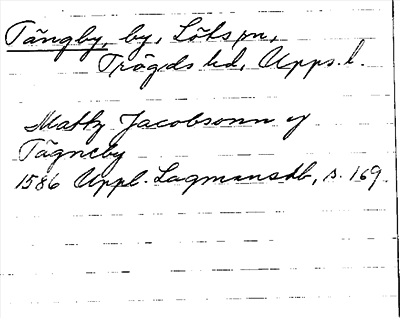 Tängby, by, Löts sn,
Trögds hd, Upps. l.
Matz Jacobsonn y
Tägneby
1586 Uppl. Lagmansdb, s. 169.